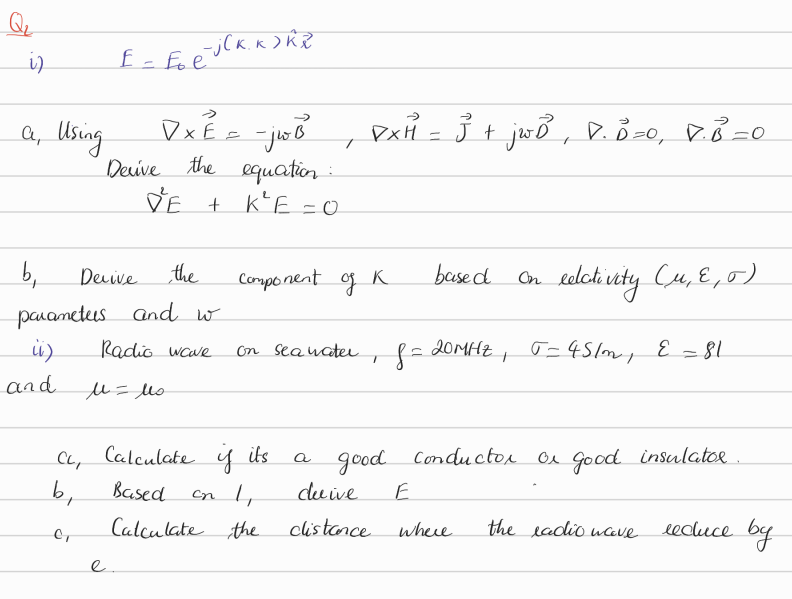 Q2
i) E = E₀ e^{-j(K·K) k̂ r⃗}
a, Using ∇×E⃗ = -jωB⃗ , ∇×H⃗ = J⃗ + jωD⃗ , ∇·D⃗=0, ∇·B⃗=0
Derive the equation :
∇²E + K²E = 0
b, Derive the component of K based on relativity (μ, ε, σ)
parameters and w
ii) Radio wave on sea water, f = 20MHz, σ = 4S/m, ε = 81
and μ = μ₀
a, Calculate if its a good conductor or good insulator.
b, Based on 1, derive E
c, Calculate the distance where the radio wave reduce by
e.